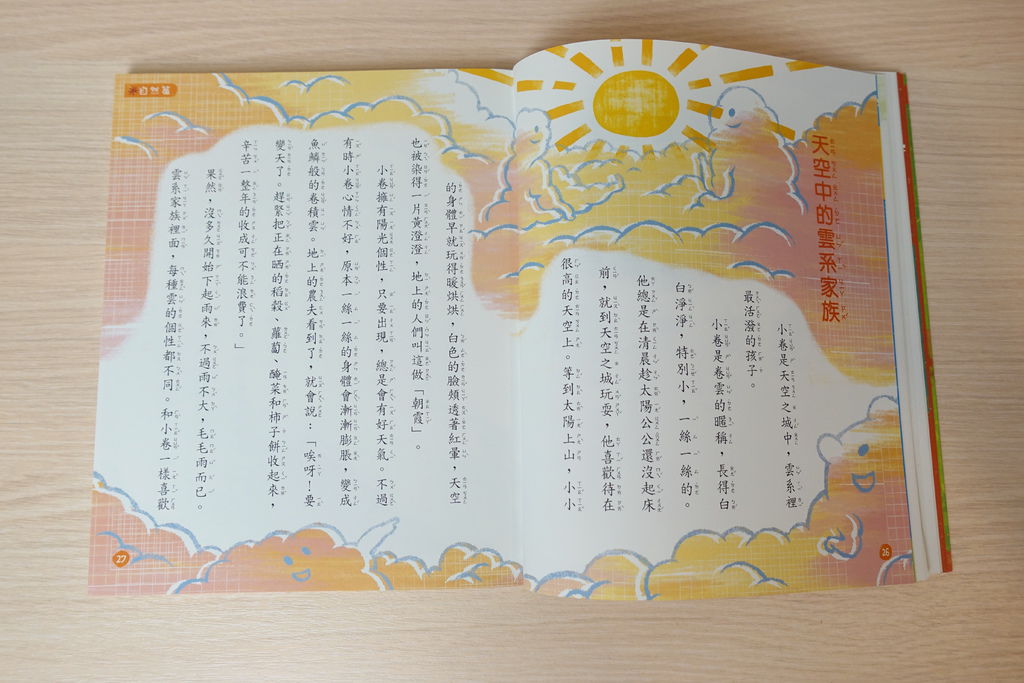 天空中的雲系家族
小卷是天空之城中，雲系裡
最活潑的孩子。
小卷是卷雲的暱稱，長得白
白淨淨，特別小，一絲一絲的。
他總是在清晨趁太陽公公還沒起床
前，就到天空之城玩耍，他喜歡待在
很高的天空上。等到太陽上山，小小
26
自然篇
的身體早就玩得暖烘烘，白色的臉頰透著紅暈，天空
也被染得一片黃澄澄，地上的人們叫這做「朝霞」。
小卷擁有陽光個性，只要出現，總是會有好天氣。不過
有時小卷心情不好，原本一絲一絲的身體會漸漸膨脹，變成
魚鱗般的卷積雲。地上的農夫看到了，就會說：「唉呀！要
變天了。趕緊把正在晒的稻穀、蘿蔔、醃菜和柿子餅收起來，
辛苦一整年的收成可不能浪費了。」
果然，沒多久開始下起雨來，不過雨不大，毛毛雨而已。
雲系家族裡面，每種雲的個性都不同。和小卷一樣喜歡
27